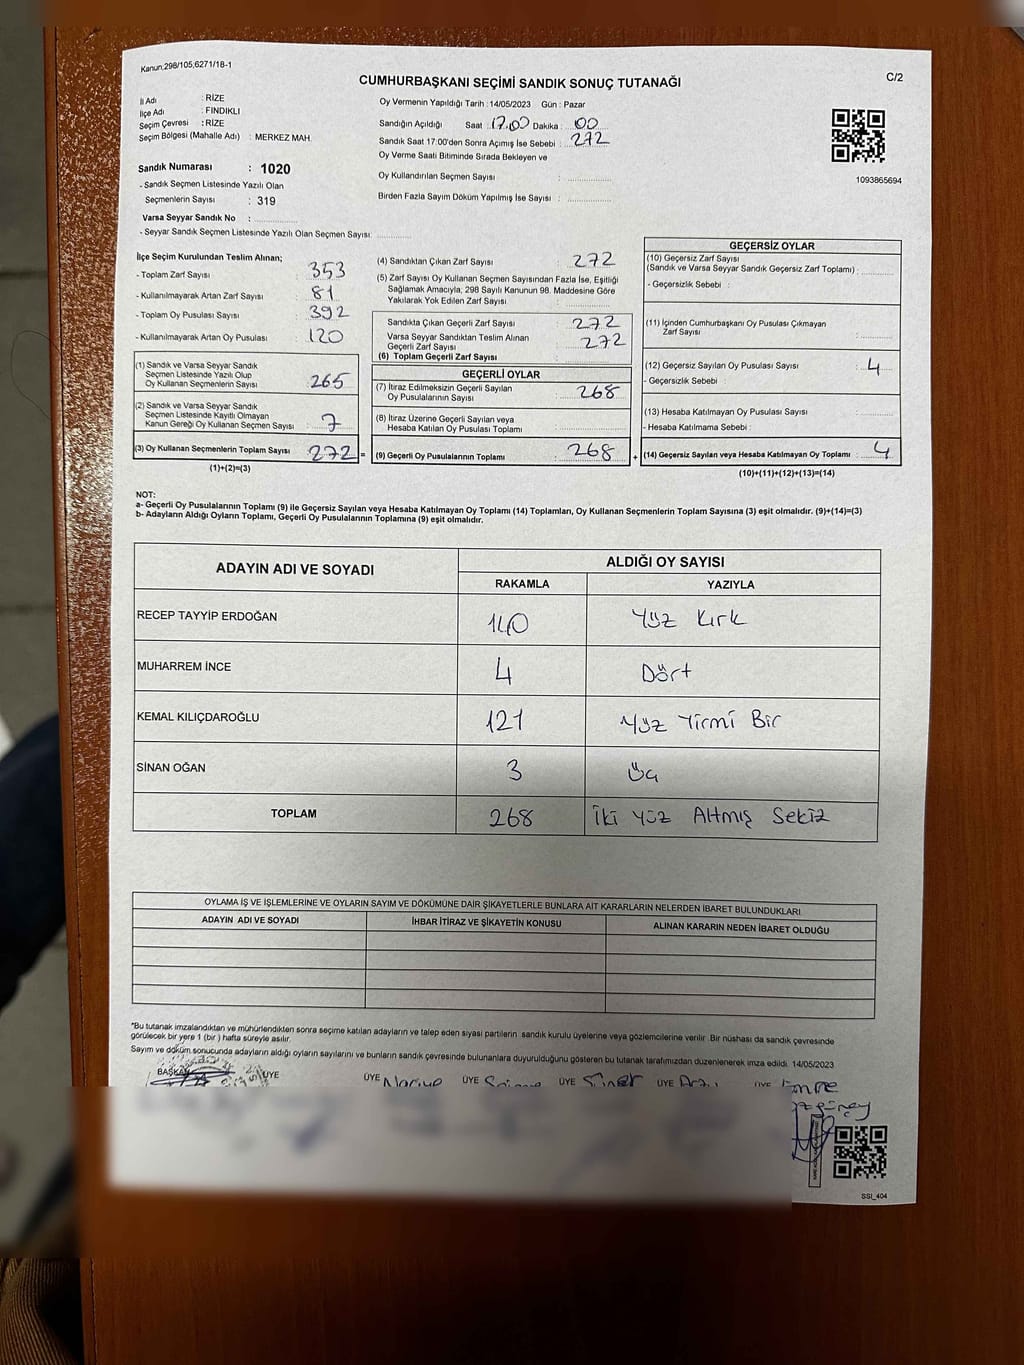 Kanun,298/105,6271/18-1
CUMHURBAŞKANI SEÇİMİ SANDIK SONUÇ TUTANAĞI
C/2
İl Adı : RİZE
İlçe Adı : FINDIKLI
Seçim Çevresi : RİZE
Seçim Bölgesi (Mahalle Adı) : MERKEZ MAH.
Sandık Numarası : 1020
- Sandık Seçmen Listesinde Yazılı Olan
Seçmenlerin Sayısı : 319
Varsa Seyyar Sandık No :
- Seyyar Sandık Seçmen Listesinde Yazılı Olan Seçmen Sayısı:
Oy Vermenin Yapıldığı Tarih : 14/05/2023 Gün : Pazar
Sandığın Açıldığı Saat : 17.00 Dakika : 00
Sandık Saat 17:00'den Sonra Açımış İse Sebebi : 272
Oy Verme Saati Bitiminde Sırada Bekleyen ve
Oy Kullandırılan Seçmen Sayısı :
Birden Fazla Sayım Döküm Yapılmış İse Sayısı :
1093865694
İlçe Seçim Kurulundan Teslim Alınan;
- Toplam Zarf Sayısı : 353
- Kullanılmayarak Artan Zarf Sayısı : 81
- Toplam Oy Pusulası Sayısı : 392
- Kullanılmayarak Artan Oy Pusulası : 120
(1) Sandık ve Varsa Seyyar Sandık
Seçmen Listesinde Yazılı Olup
Oy Kullanan Seçmenlerin Sayısı : 265
(2) Sandık ve Varsa Seyyar Sandık
Seçmen Listesinde Kayıtlı Olmayan
Kanun Gereği Oy Kullanan Seçmen Sayısı : 7
(3) Oy Kullanan Seçmenlerin Toplam Sayısı : 272 =
(1)+(2)=(3)
(4) Sandıktan Çıkan Zarf Sayısı : 272
(5) Zarf Sayısı Oy Kullanan Seçmen Sayısından Fazla İse, Eşitliği
Sağlamak Amacıyla, 298 Sayılı Kanunun 98. Maddesine Göre
Yakılarak Yok Edilen Zarf Sayısı :
Sandıkta Çıkan Geçerli Zarf Sayısı : 272
Varsa Seyyar Sandıktan Teslim Alınan
Geçerli Zarf Sayısı : 272
(6) Toplam Geçerli Zarf Sayısı
GEÇERLİ OYLAR
(7) İtiraz Edilmeksizin Geçerli Sayılan
Oy Pusulalarının Sayısı : 268
(8) İtiraz Üzerine Geçerli Sayılan veya
Hesaba Katılan Oy Pusulası Toplamı :
(9) Geçerli Oy Pusulalarının Toplamı : 268 +
GEÇERSİZ OYLAR
(10) Geçersiz Zarf Sayısı
(Sandık ve Varsa Seyyar Sandık Geçersiz Zarf Toplamı) :
- Geçersizlik Sebebi :
(11) İçinden Cumhurbaşkanı Oy Pusulası Çıkmayan
Zarf Sayısı :
(12) Geçersiz Sayılan Oy Pusulası Sayısı : 4
- Geçersizlik Sebebi :
(13) Hesaba Katılmayan Oy Pusulası Sayısı :
- Hesaba Katılmama Sebebi :
(14) Geçersiz Sayılan veya Hesaba Katılmayan Oy Toplamı : 4
(10)+(11)+(12)+(13)=(14)
NOT:
a- Geçerli Oy Pusulalarının Toplamı (9) ile Geçersiz Sayılan veya Hesaba Katılmayan Oy Toplamı (14) Toplamları, Oy Kullanan Seçmenlerin Toplam Sayısına (3) eşit olmalıdır. (9)+(14)=(3)
b- Adayların Aldığı Oyların Toplamı, Geçerli Oy Pusulalarının Toplamına (9) eşit olmalıdır.
ADAYIN ADI VE SOYADI
ALDIĞI OY SAYISI
RAKAMLA YAZIYLA
RECEP TAYYİP ERDOĞAN 140 Yüz Kırk
MUHARREM İNCE 4 Dört
KEMAL KILIÇDAROĞLU 121 Yüz Yirmi Bir
SİNAN OĞAN 3 Üç
TOPLAM 268 İki Yüz Altmış Sekiz
OYLAMA İŞ VE İŞLEMLERİNE VE OYLARIN SAYIM VE DÖKÜMÜNE DAİR ŞİKAYETLERLE BUNLARA AİT KARARLARIN NELERDEN İBARET BULUNDUKLARI
ADAYIN ADI VE SOYADI İHBAR İTİRAZ VE ŞİKAYETİN KONUSU ALINAN KARARIN NEDEN İBARET OLDUĞU
*Bu tutanak imzalandıktan ve mühürlendikten sonra seçime katılan adayların ve talep eden siyasi partilerin sandık kurulu üyelerine veya gözlemcilerine verilir. Bir nüshası da sandık çevresinde
görülecek bir yere 1 (bir) hafta süreyle asılır.
Sayım ve döküm sonucunda adayların aldığı oyların sayılarını ve bunların sandık çevresinde bulunanlara duyurulduğunu gösteren bu tutanak tarafımızdan düzenlenerek imza edildi. 14/05/2023
BAŞKAN ÜYE ÜYE ÜYE ÜYE ÜYE ÜYE Emre
SSI_404